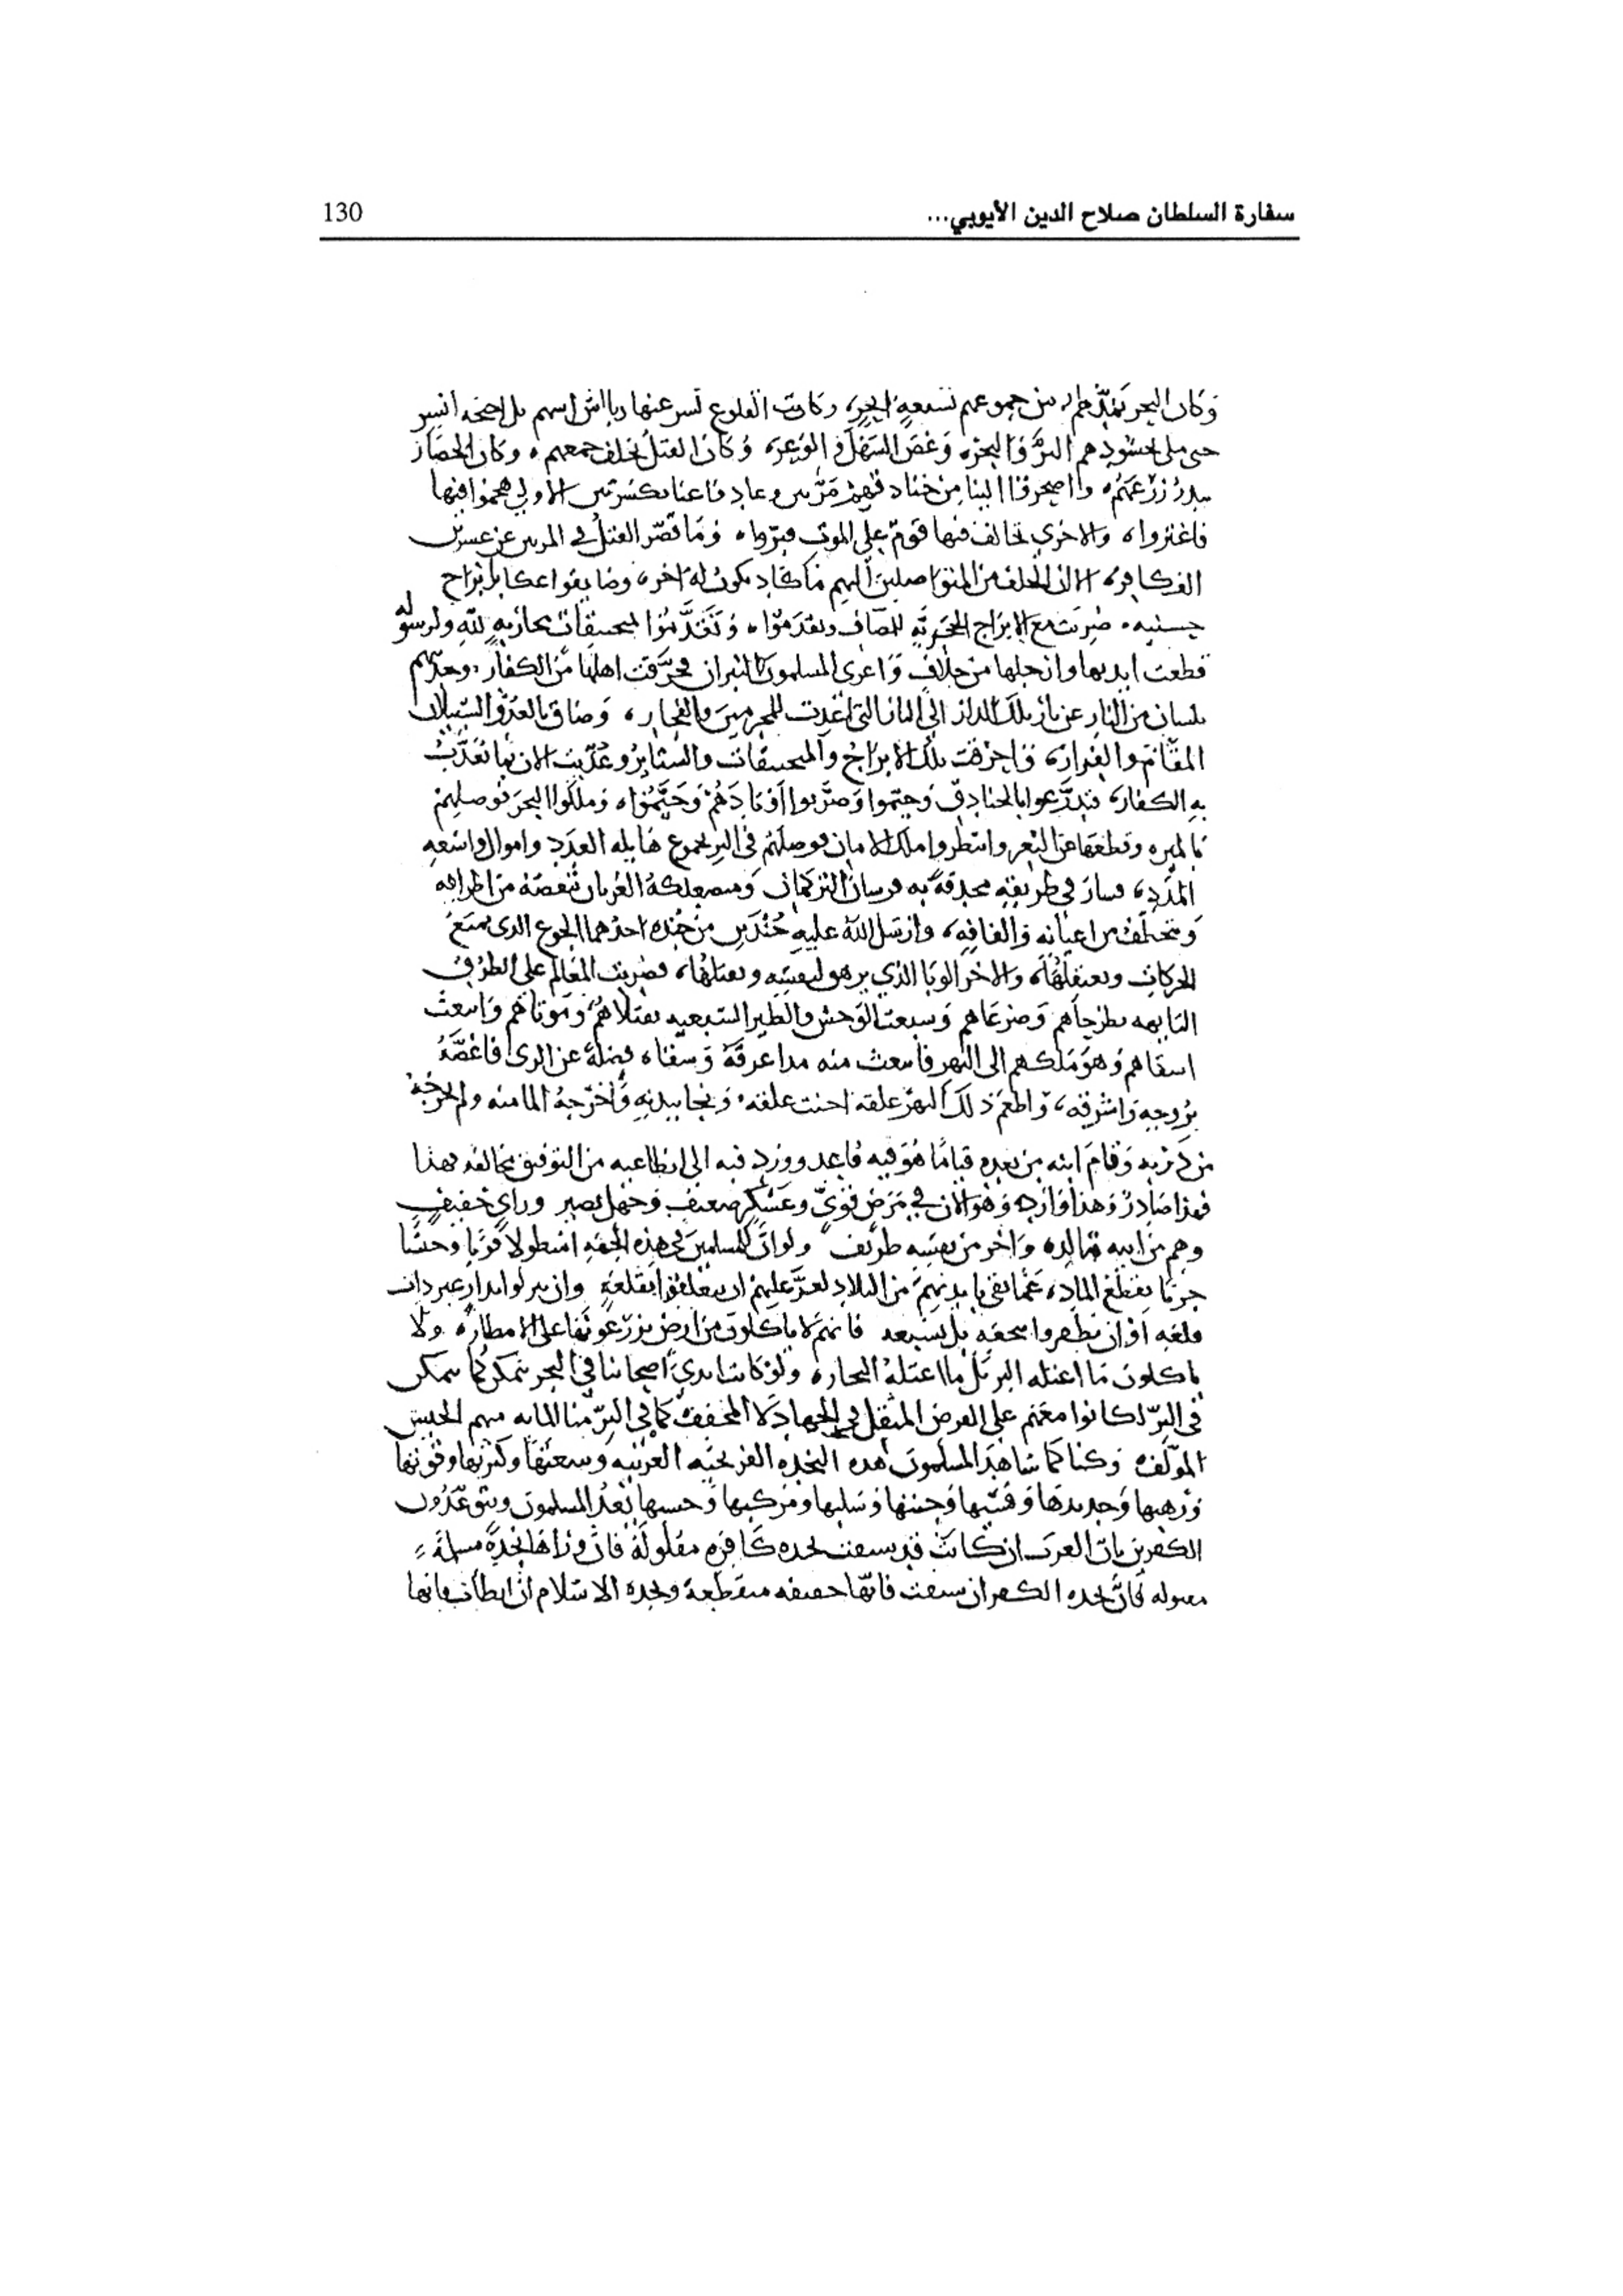 سفارة السلطان صلاح الدين الأيوبي... 130
وكان البحر يمدهم من جموعهم بسبعه ابحر، وكانت القلوع تسر عنها اسهم بل اجنحه انسر
حتى ملى بحشودهم البر والبحر، وغص السهل والوعر، وكان القتل يخلف جمعهم، وكان الحصار
يبدر زرعهم، واصحروا الينا من خنادقهم مرتين وعاد فاعنا بكسرتين الاولى هجموا فيها
فاغتروا، والاخرى تحالف فيها قوم على الموت فبروا، وما قصر القتل في المرتين عن عشرين
الف كافر، الا ان الخلف من المتواصلين اليهم ما كاد يكون له اخر، وضايقوا عكا بابراج
خشبيه، ضربت مع الابراج الحجريه للمصاف وتقدموا، وتقدموا بمنجنيقات محاربه لله ولرسوله
قطعت ايديها وارجلها من خلاف واغرى المسلمون النيران فحرقت اهلها من الكفار، وحدثهم
بلسان من النار عن نار تلك الدار الى النار التي اعدت للمجرمين والفجار، وضاق بالعدو السبيلان
المقام والفرار، واحرقت تلك الابراج والمنجنيقات والستاير وعذبت الان بما تعذب
به الكفار، فتدرعوا بالخنادق وجثموا وضربوا اوتادهم وخيموا، وملكوا البحر فوصلهم
بالميره وقطعها عن الثغر وانتظروا ملك الامان فوصلهم في البر بجموع هايله العدد واموال واسعه
المدد، فسار في طريقه محدقة به فرسان التركمان وصعلكة العربان تنقصه من اطرافه
وتتخطف من اعيانه والفافه، وارسل الله عليه جندين من جنده احدهما الجوع الذي يمنع
الحركات ويعتقلها، والاخر الوبا الذي يرهق النفسه ويقتلها، فضربت المعالم على الطرق
التايهه بطرحاهم وصرعاهم وشبعت الوحش والطير السبعيه بقتلاهم وموتاهم وانبعث
اشقاهم وهو ملكهم الى النهر فانبعث منه ما اغرقه وسقاه فضلة عن الري فاغصه
بروحه واشرقه، واطعم ذلك النهر علقه احنت علقه، ونجا ببدنه واخرجه الما منه ولم يخرجه
من دربه وقام ابنه من بعده قياما هو فيه قاعد وورد فيه الى انطاكيه من التوفيق مخالف لهذا
فهذا صادر وهذا وارد، وهو الان في مرض قوي وعسكر ضعيف وجهل بصير وراي خفيف
وهم من ابيه تالد، واخر من نفسه طريف ولو ان للمسلمين في هذه الجهه اسطولا قويا وجيشا
جريا يقطع الماده عما بقي بايديهم من البلاد لعز عليهم ان يتعلقوا بقلعه وان ينزلوا بدار غير ذات
قلعه او ان يظهروا فانهم لا ياكلون من ارض يزرعونها على الامطار، ولا
ياكلون ما اغتله البر بل ما اغتله البحار، ولو كانت ايدي اصحابنا في البحر تتمكن كما تتمكن
في البر لكانوا معهم على الفرض المثقل في الجهاد لا المخفف كما في البر منا المايه منهم الجيش
المولفه وكنا كما شاهد المسلمون هذه النجده الفرنجيه الغربيه وسعتها وكثرتها وقوتها
وذهبها وحديدها وقضها وجنتها وسلبها ومركبها وحسبها يعد المسلمون ويتوعدون
الكفرين بان الغرب ان كانت قد سبقت نجده كافره مفلولة فان وراها نجدة مسلمة
مقبوله فان نجده الكفر ان سبقت فانها خفيفه منقطعة ونجدة الاسلام ان ابطات فانها